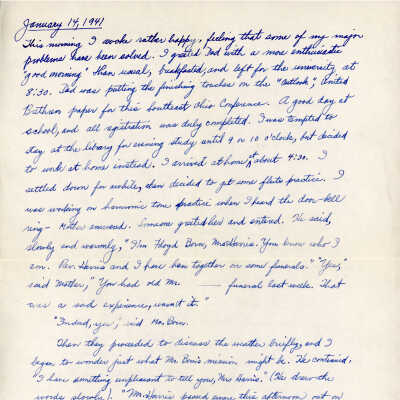 January 14, 1941
This morning I awoke rather happy, feeling that some of my major
problems have been solved. I greeted Dad with a more enthusiastic
"good morning" than usual, breakfasted, and left for the university at
8:30. Dad was putting the finishing touches on the "Outlook", United
Brethren paper for this Southeast Ohio Conference. A good day at
school, and all registration was duly completed. I was tempted to
stay at the library for evening study until 9 or 10 o'clock, but decided
to work at home instead. I arrived at home at about 4:30. I
settled down for awhile, then decided to get some flute practice. I
was working on harmonic tone practice when I heard the door-bell
ring - Mother answered. Someone greeted her and entered. He said,
slowly and warmly, "I'm Floyd Born, Mrs. Harris; You know who I
am. Rev. Harris and I have been together on some funerals." "Yes,"
said Mother, "You had old Mr. ___ funeral last week. That
was a sad experience, wasn't it."
"Indeed, yes", said Mr. Born.
Then they proceeded to discuss the matter briefly, and I
began to wonder just what Mr. Born's mission might be. He continued,
"I have something unpleasant to tell you, Mrs. Harris." (He drew the
words slowly.) "Mr. Harris passed away this afternoon out on